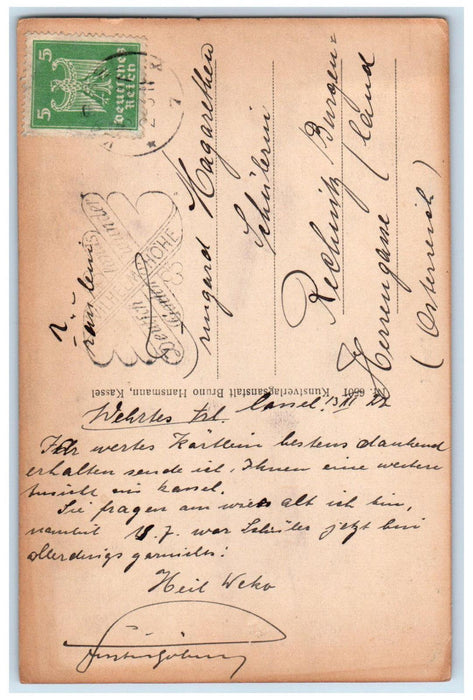 5 5
Deutsches
Reich
WILHELMSHÖHE
Fräulein
Irmgard Magarethen
Schülerin
Rechnitz Burgen=
Herrengasse / land
(Österreich)
6501 Kunstverlagsanstalt Bruno Hansmann, Kassel
Wehrtes Frl. Cassel. 13
Ihr wertes Kärtlein bestens dankend
erhalten sende ich, Ihnen eine weitere
Ansicht aus Kassel.
Sie fragen am wie alt ich bin,
17. J. war Schüler jetzt bin
allerdings garnichts!
Heil Weko